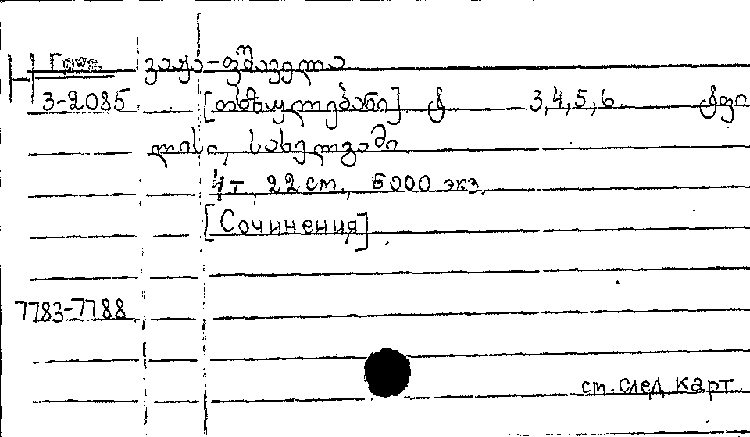 Груз. ვაჟა-ფშაველა
3-2085 [თხზულებანი] ტ 3,4,5,6 ტფი
ლისი, სახელგამი
4 т, 22 cm, 5000 экз.
[Сочинения]
7783-7788
см. след карт